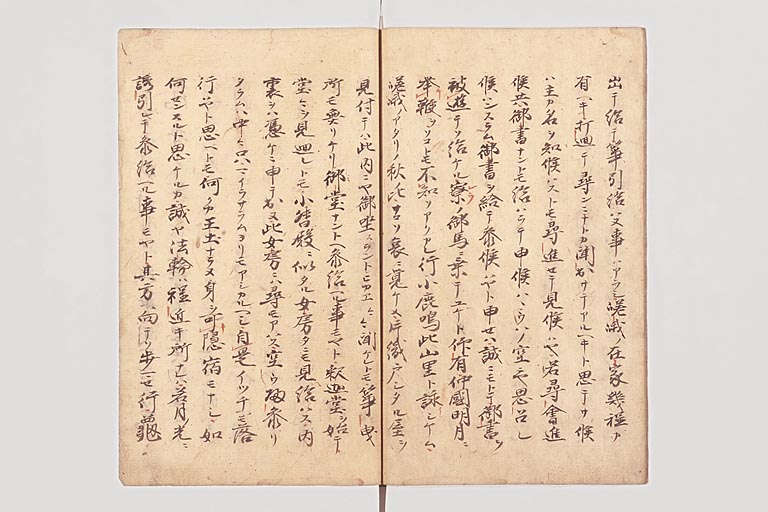 出テ給テ箏引給ハヌ事ハアラシ嵯峨ノ在家幾程カ
有ヘキ打廻テ尋ンニナトカ聞出サテアルヘキト思テサ候
ハ主カ名ヲ知候ハストモ尋進セテ見候ハヤ若尋會進
候共御書ナントモ給ハラテ申候ハンハウハノ空ニヤ思召レ
候ハンスラム御書ヲ給テ参候ハヤト申セハ誠ニモトテ御書ヲ
被遊テソ給ケル寮ノ御馬ニ乗テユケト仰有仲國明月ニ
挙鞭ヲソコトモ不知ソアクカレ行小鹿鳴此山里ト詠シケム
嵯峨ノアタリノ秋ノ比サコソ哀ニ覚ケメ片織戸シタル屋ヲ
見付テハ此内ニヤ御坐スラントヒカエ〱聞ケレトモ箏曳
所モ無リケリ御堂ナントヘ参給ヘル事モヤト釈迦堂ヲ始テ
堂〱ヲ見廻レトモ小督殿ニ似タル女房タニモ見給ハス内
裏ヲハ憑ケニ申テ出ヌ此女房ハ尋モアハス空ウ歸参リ
タラムハ中〱只ハイラサラムヨリモアシカルヘシ自是イツチモ落
行ハヤト思ヘトモ何クカ王土ナラヌ身ヲ可隠宿モナシ如
何センスルト思ケルカ誠ヤ法輪ハ程近キ所ナレハ若月光ニ
誘引レテ参給ヘル事モヤト其方ヘ向テソ歩マセ行龜